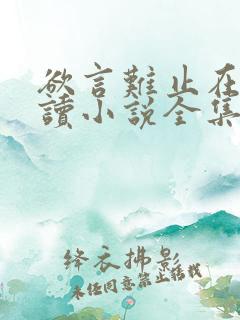 欲言難止在
讀小說全集
绛衣拂影
未经同意禁止转载